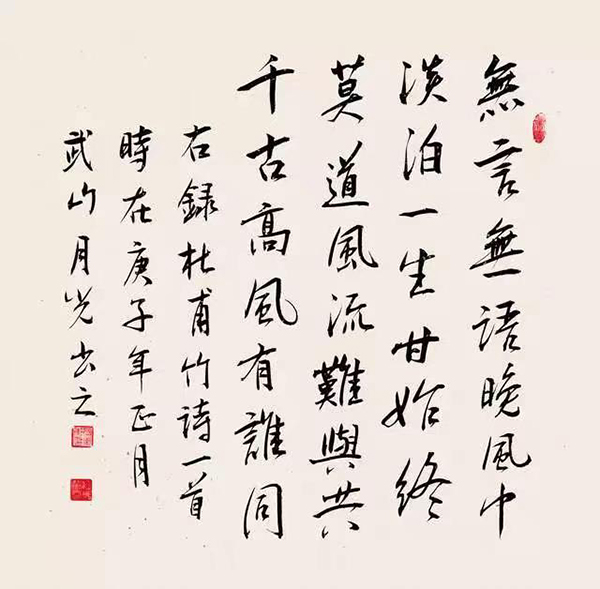 無言無語晚風中
淡泊一生甘始終
莫道風流難與共
千古高風有誰同
右録杜甫竹詩一首
時在庚子年正月
武山月光書之